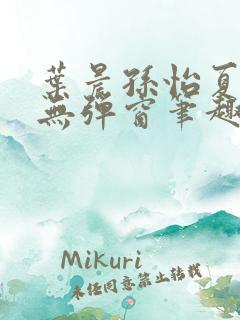 葉晨孫怡夏
無彈窗筆趣
Mikuri
未经同意禁止转载